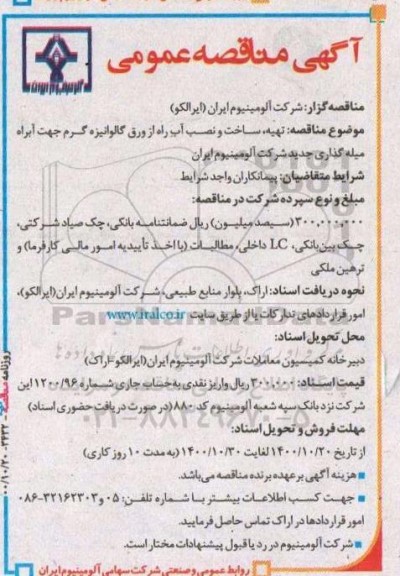 آگهی مناقصه عمومی
آلومینیوم ایران
مناقصه گزار: شرکت آلومینیوم ایران (ایرالکو)
موضوع مناقصه: تهیه، ساخت و نصب آب راه از ورق گالوانیزه گرم جهت آبراه
میله گذاری جدید شرکت آلومینیوم ایران
شرایط متقاضیان: پیمانکاران واجد شرایط
مبلغ و نوع سپرده شرکت در مناقصه:
۳۰۰,۰۰۰,۰۰۰ (سیصد میلیون) ریال ضمانتنامه بانکی، چک صیاد شرکتی،
چک بین بانکی، LC داخلی، مطالبات (با اخذ تأییدیه امور مالی کارفرما) و
ترهین ملکی
نحوه دریافت اسناد: اراک، بلوار منابع طبیعی، شرکت آلومینیوم ایران (ایرالکو)،
امور قراردادهای تدارکات یا از طریق سایت www.iralco.ir
محل تحویل اسناد:
دبیرخانه کمیسیون معاملات شرکت آلومینیوم ایران (ایرالکو-اراک)
قیمت اسناد: ۳۰۰,۰۰۰ ریال واریز نقدی به حساب جاری شماره ۱۲۰۰/۹۶ این
شرکت نزد بانک سپه شعبه آلومینیوم کد ۸۸۰ (در صورت دریافت حضوری اسناد)
مهلت فروش و تحویل اسناد:
از تاریخ ۱۴۰۰/۱۰/۲۰ لغایت ۱۴۰۰/۱۰/۳۰ (به مدت ۱۰ روز کاری)
■ هزینه آگهی بر عهده برنده مناقصه می‌باشد.
■ جهت کسب اطلاعات بیشتر با شماره تلفن: ۰۵ و ۳۲۱۶۲۳۰۳-۰۸۶
امور قراردادها در اراک تماس حاصل فرمایید.
■ شرکت آلومینیوم در رد یا قبول پیشنهادات مختار است.
روابط عمومی و صنعتی شرکت سهامی آلومینیوم ایران
ParsNamadData